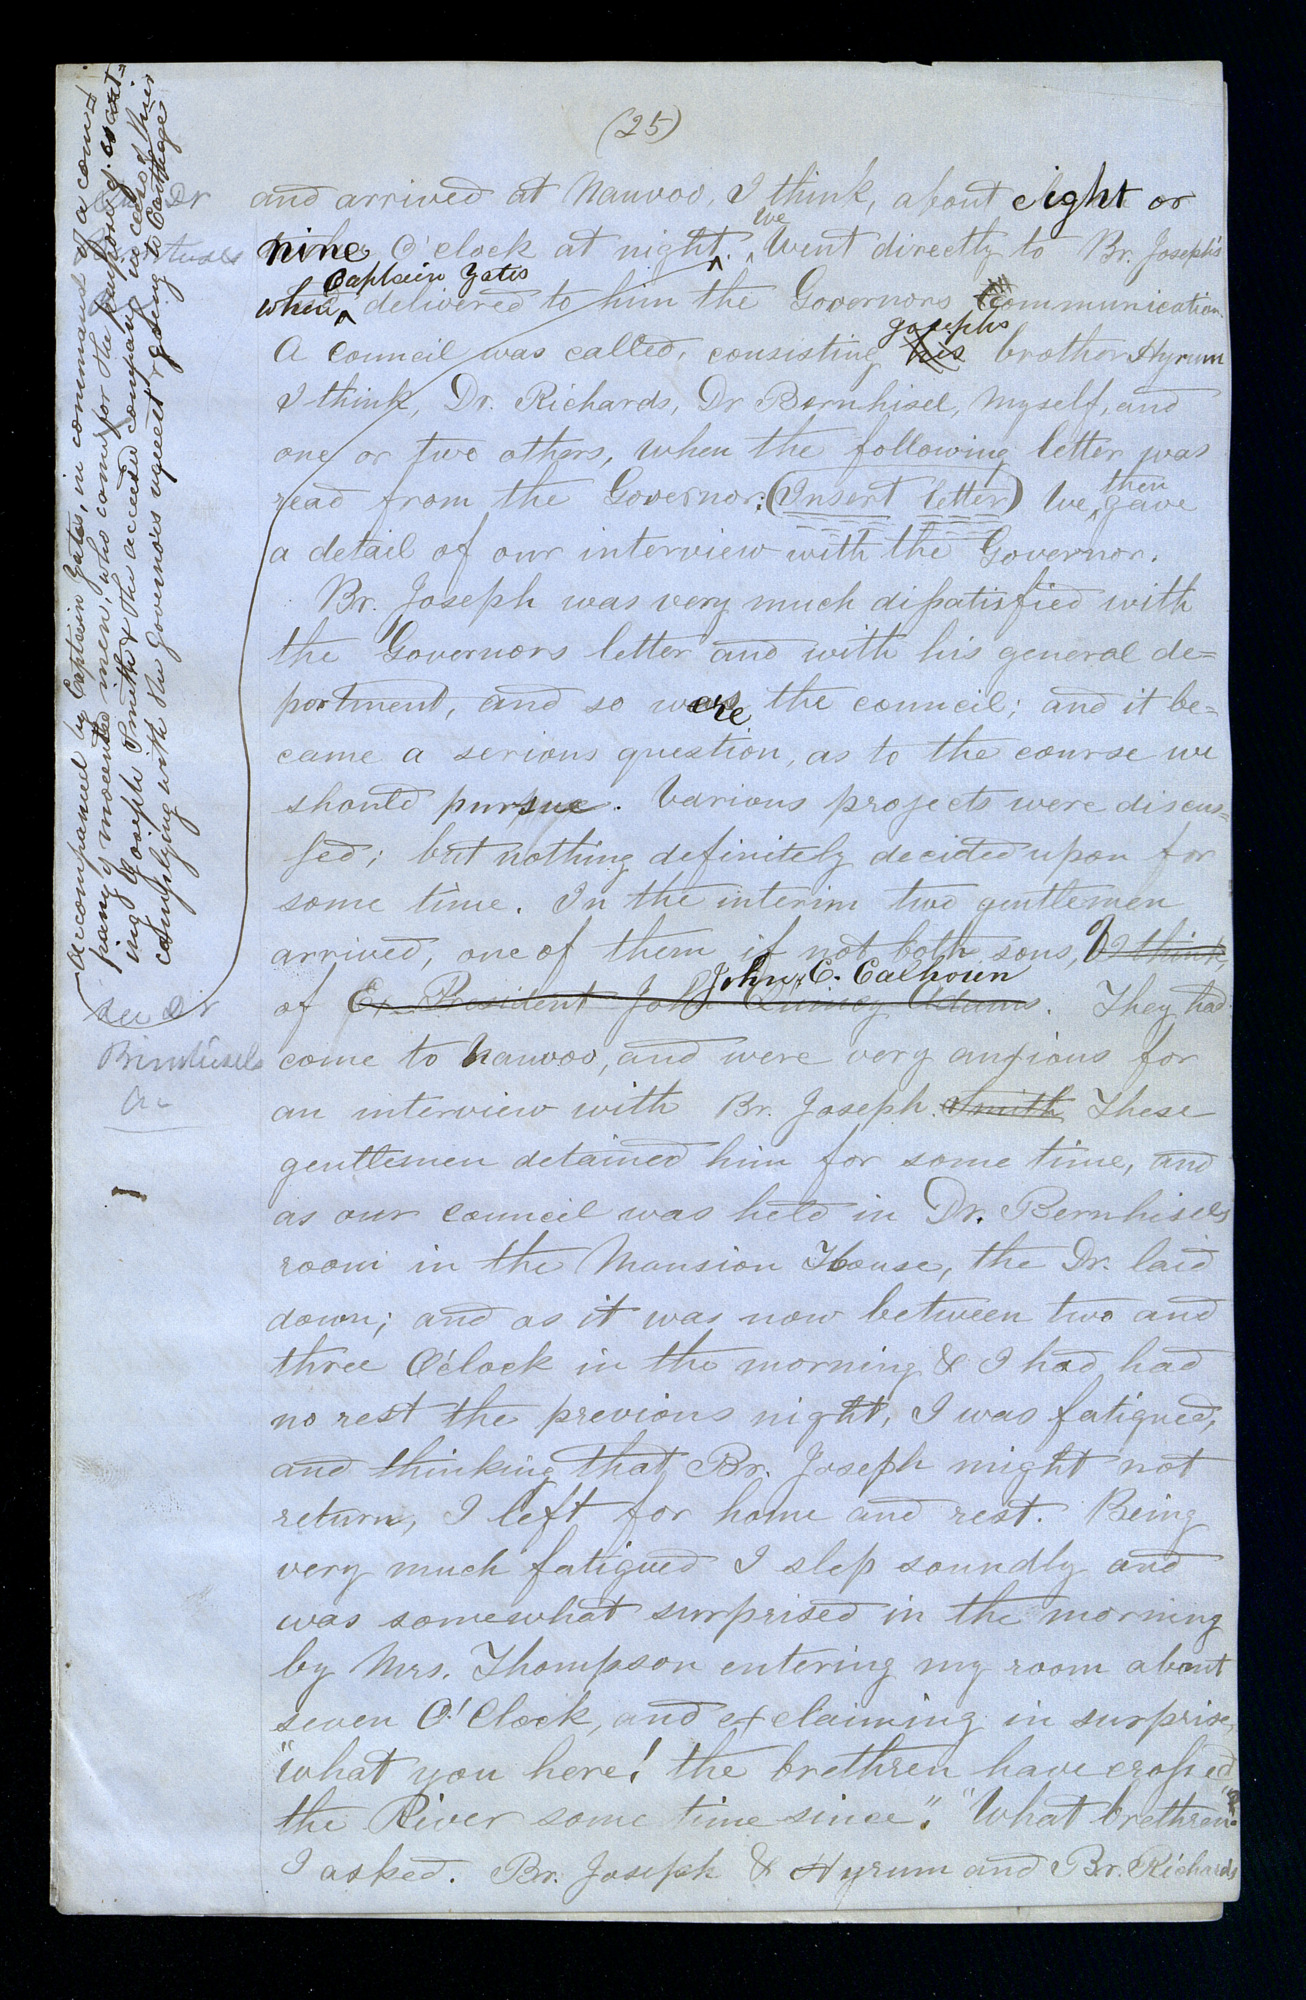 (25)
and arrived at Nauvoo, I think, about eight or
nine O'clock at night. We Went directly to Br. Joseph's
when Captain Yates delivered to him the Governors communication.
A Council was called, consisting his Josephs brother Hyrum
I think, Dr. Richards, Dr Bernhisel, Myself, and
one or two others, when the following letter was
read from the Governor: (Insert letter) We then gave
a detail of our interview with the Governor.
Br. Joseph was very much dissatisfied with
the Governors letter and with his general de=
portment, and so were the council; and it be=
came a serious question, as to the course we
should pursue. Various projects were discus=
sed; but nothing definitely decided upon for
some time. In the interim two gentlemen
arrived, one of them if not both sons, of I think,
of Ex President John Quincy Adams John C. Calhoun. They had
come to Nauvoo, and were very anxious for
an interview with Br. Joseph. Smith These
gentlemen detained him for some time, and
as our Council was held in Dr. Bernhisels
room in the Mansion House, the Dr. laid
down; and as it was now between two and
three O'clock in the morning & I had had
no rest the previous night, I was fatigued,
and thinking that Br. Joseph might not
return, I left for home and rest. Being
very much fatigued I slep soundly and
was somewhat surprised in the morning
by Mrs. Thompson entering my room about
seven O'Clock, and exclaiming in surprise,
"What you here! the brethren have crossed
the River some time since". "What brethren"?
I asked. Br. Joseph & Hyrum and Br. Richards
Accompanied by Captain Yates, in command of a com=
pany of mounted men, who came for the purpose of escort=
ing Joseph Smith & the accused company in case of their
complying with the Governors request of going to Carthage
Dr
See Dr
Bernhisels